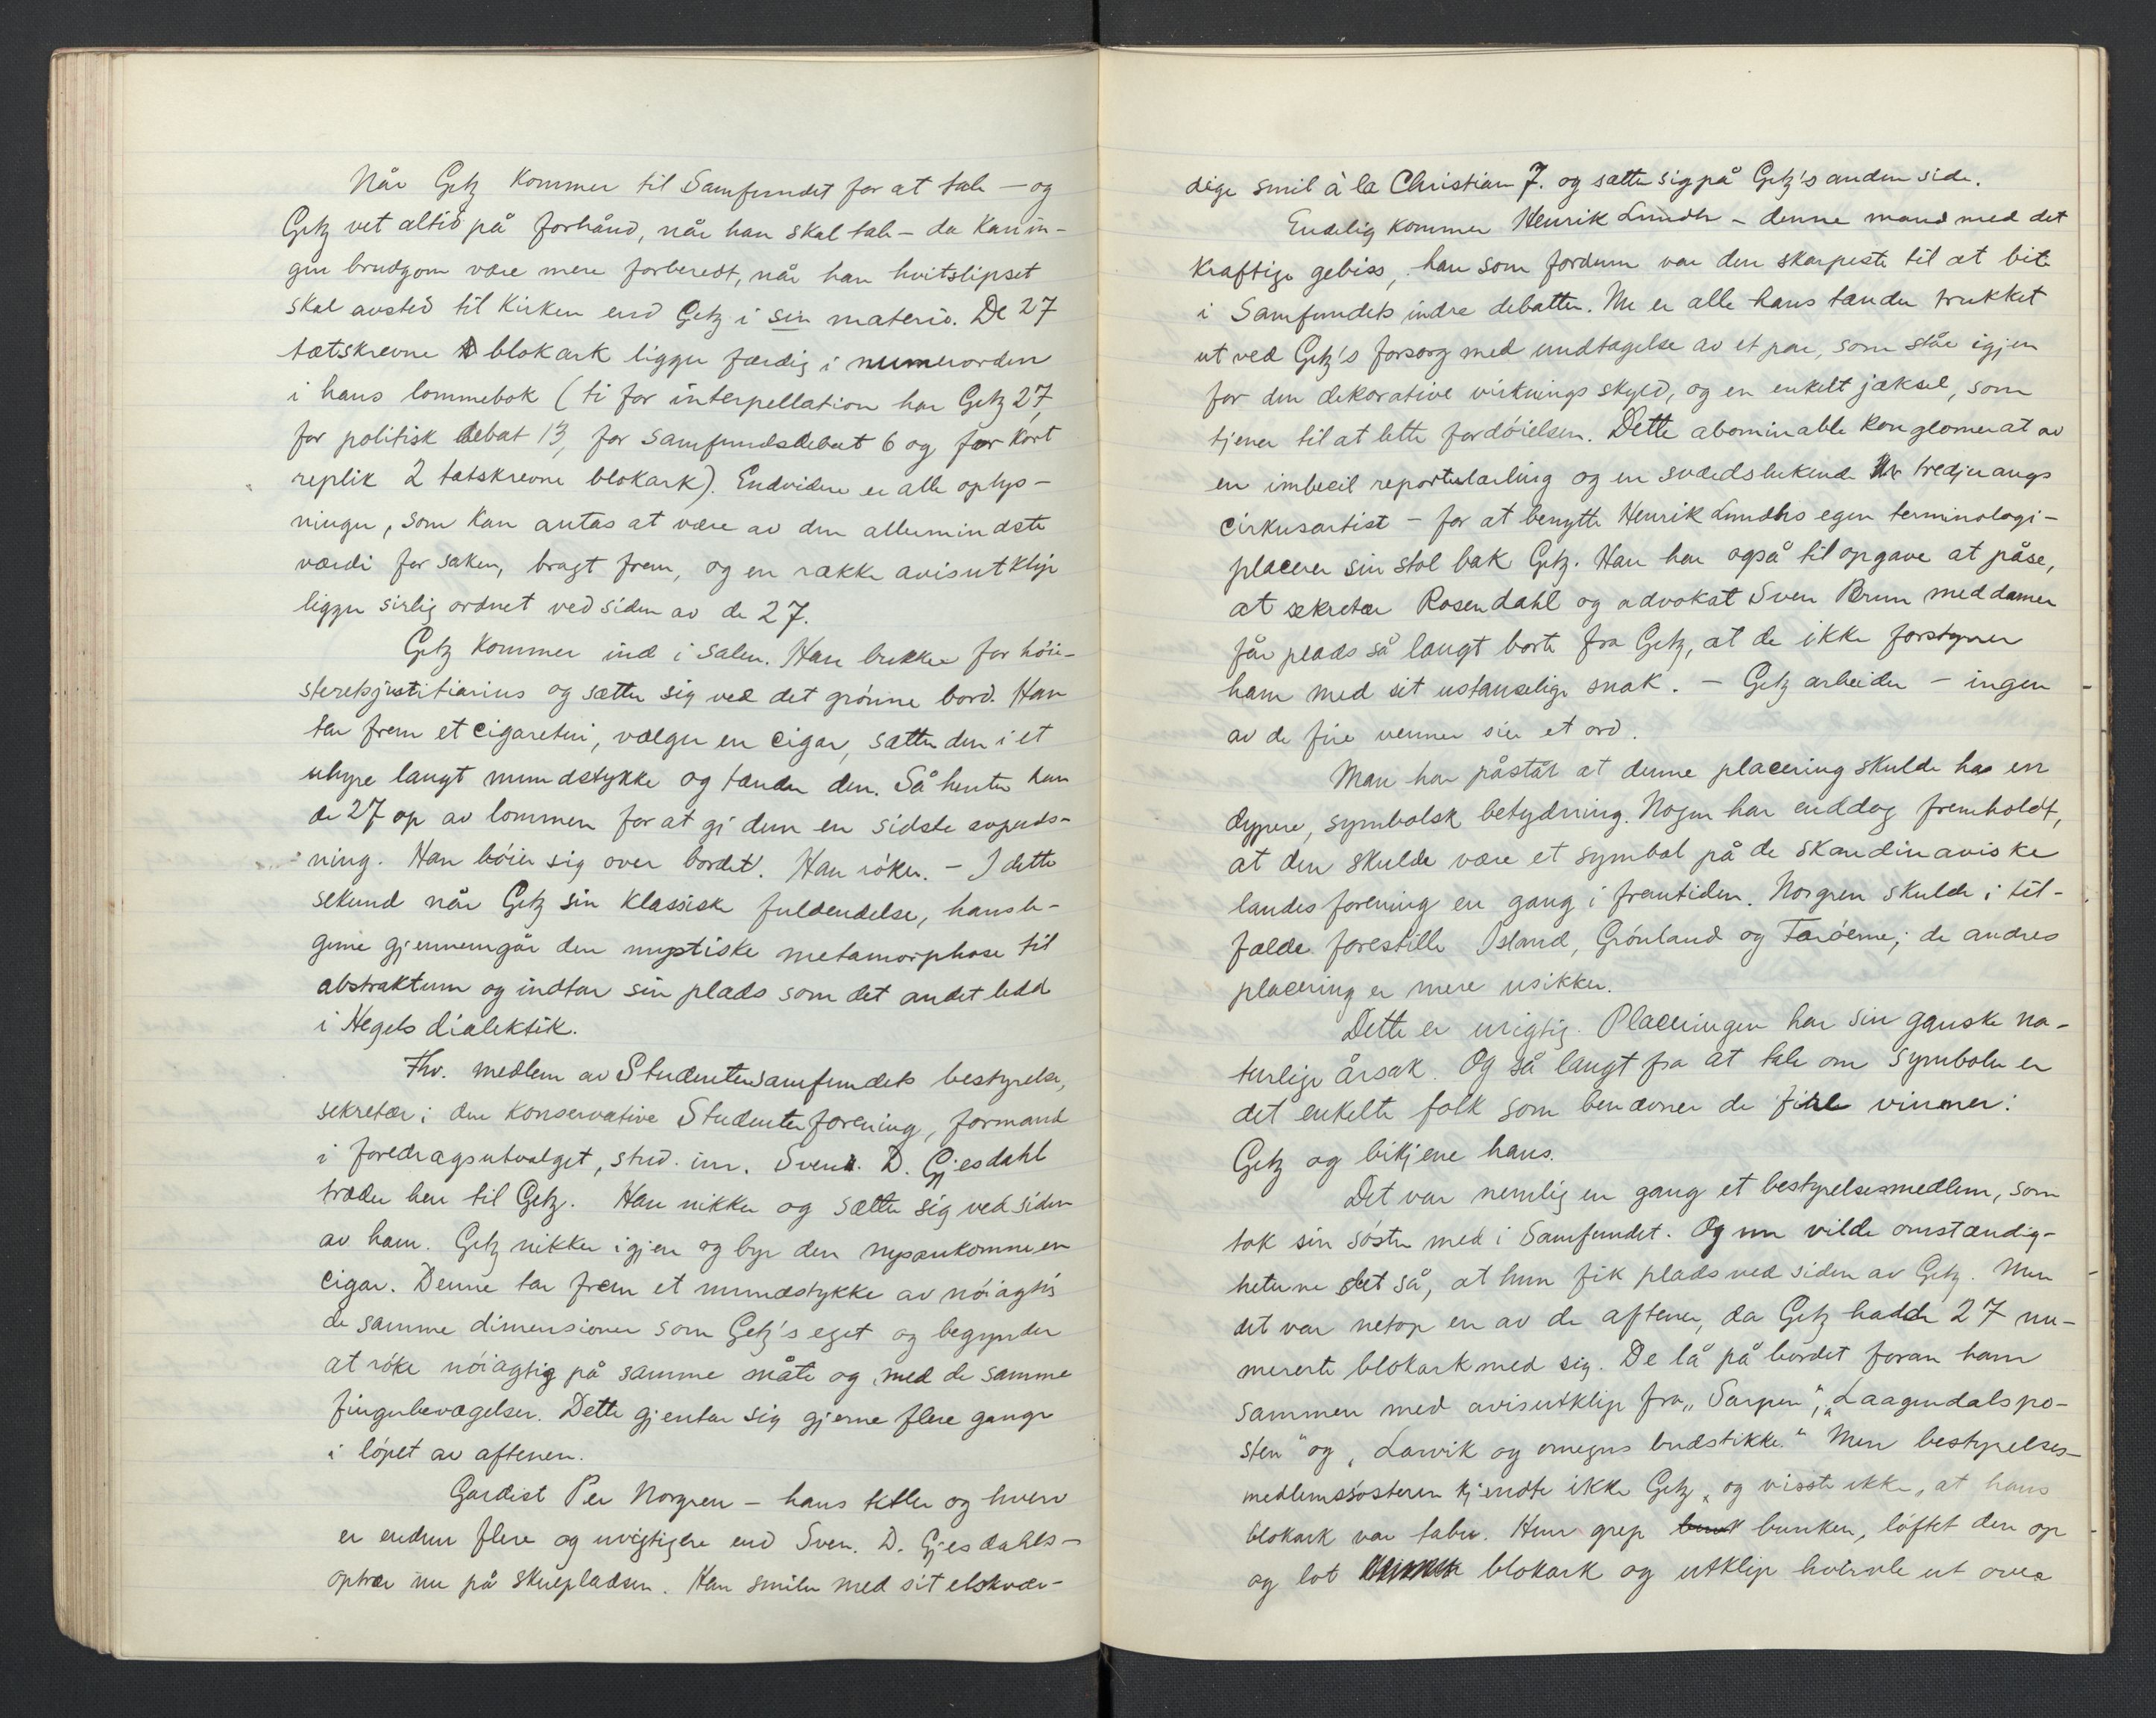 Når Getz kommer til Samfundet for at tale — og
Getz vet altid på forhånd, når han skal tale — da kan in-
gen brudgom være mere forberedt, når han hvitslipset
skal avsted til kirken end Getz i sin materie. De 27
tætskrevne blokark ligger færdig i numerorden
i hans lommebok (ti for interpellation har Getz 27,
for politisk debat 13, for samfundsdebat 6 og for kort
replik 2 tætskrevne blokark). Endvidere er alle oplys-
ninger, som kan antas at være av den allermindste
værdi for saken, bragt frem, og en række avisutklip
ligger sirlig ordnet ved siden av de 27.
Getz kommer ind i salen. Han bukker for høie-
steretsjustitiarius og sætter sig ved det grønne bord. Han
tar frem et cigaretui, vælger en cigar, sætter den i et
uhyre langt mundstykke og tænder den. Så henter han
de 27 op av lommen for at gi dem en sidste avpuds-
ning. Han bøier sig over bordet. Han røker. — I dette
sekund når Getz sin klassiske fuldendelse, hans le-
geme gjennemgår den mystiske metamorphose til
abstraktum og indtar sin plads som det andet ledd
i Hegels dialektik.
Fhv. medlem av Studentersamfundets bestyrelse,
sekretær i den konservative Studenterforening, formand
i foredragsutvalget, stud. jur. Sven. D. Gjesdahl
træder hen til Getz. Han nikker og sætter sig ved siden
av ham. Getz nikker igjen og byr den nyankomne en
cigar. Denne tar frem et mundstykke av nøiagtig
de samme dimensioner som Getz's eget og begynder
at røke nøiagtig på samme måte og med de samme
fingerbevægelser. Dette gjentar sig gjerne flere ganger
i løpet av aftenen.
Gardist Per Norgren — hans titler og hverv
er endnu flere og uvigtigere end Sven. D. Gjesdahls —
optrær nu på skuepladsen. Han smiler med sit elskvær-
dige smil à la Christian 7. og sætter sig på Getz's anden side.
Endelig kommer Henrik Lundh — denne mand med det
kraftige gebiss, han som fordum var den skarpeste til at bite
i Samfundets indre debatter. Nu er alle hans tænder trukket
ut ved Getz's forsorg med undtagelse av et par, som står igjen
for den dekorative virknings skyld, og en enkelt jæksel, som
tjener til at lette fordøielsen. Dette abominable konglomerat av
en imbecil reporterlærling og en sværdslukende tredjerangs
cirkusartist — for at benytte Henrik Lundhs egen terminologi —
placerer sin stol bak Getz. Han har også til opgave at påse,
at sekretær Rosendahl og advokat Sven Brun med damer
får plads så langt borte fra Getz, at de ikke forstyrrer
ham med sit ustanselige snak. — Getz arbeider — ingen
av de fire venner sier et ord.
Man har påstått at denne placering skulde ha en
dypere, symbolsk betydning. Nogen har enddog fremholdt,
at den skulde være et symbol på de skandinaviske
landes forening en gang i fremtiden. Norgren skulde i til-
fælde forestille Island, Grønland og Færøerne; de andres
placering er mere usikker.
Dette er urigtig. Placeringen har sin ganske na-
turlige årsak. Og så langt fra at tale om symboler er
det enkelte folk som benævner de fire venner:
Getz og bikjene hans.
Det var nemlig en gang et bestyrelsesmedlem, som
tok sin søster med i Samfundet. Og nu vilde omstændig-
heterne det så, at hun fik plads ved siden av Getz. Men
det var netop en av de aftener, da Getz hadde 27 nu-
mererte blokark med sig. De lå på bordet foran ham
sammen med avisutklip fra „Sarpen", „Laagendalspo-
sten" og „Larvik og omegns budstikke." Men bestyrelses-
medlemssøsteren kjendte ikke Getz og visste ikke, at hans
blokark var tabu. Hun grep bunken, løftet den op
og lot blokark og utklip hvirvle ut over